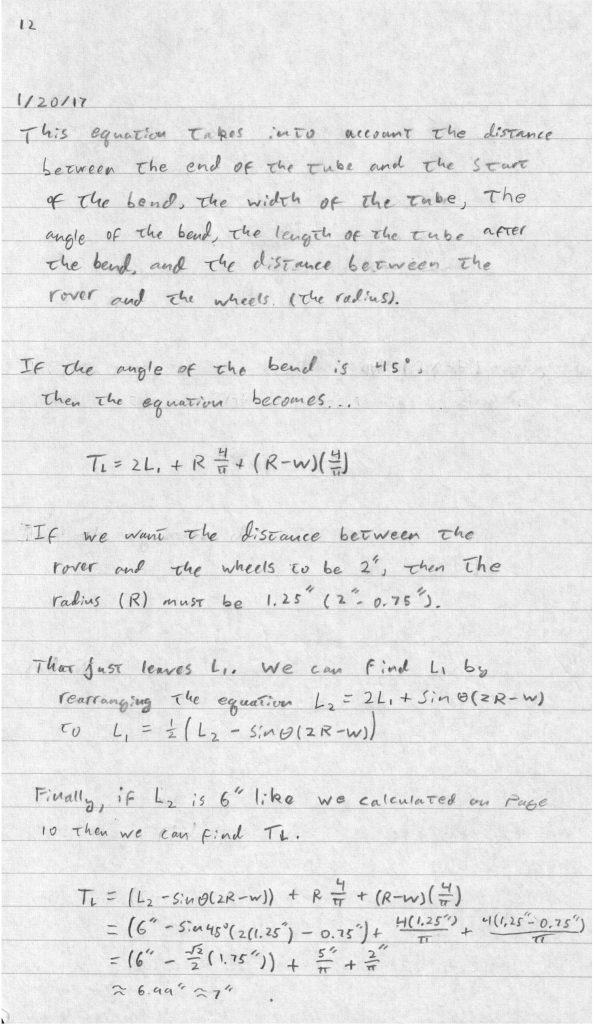 12
1/20/17
This equation takes into account the distance
between the end of the tube and the start
of the bend, the width of the tube, the
angle of the bend, the length of the tube after
the bend, and the distance between the
rover and the wheels. (the radius).
If the angle of the bend is 45°,
then the equation becomes...
TL = 2L₁ + R 4/π + (R-w)(4/π)
If we want the distance between the
rover and the wheels to be 2", then the
radius (R) must be 1.25" (2" - 0.75").
That just leaves L₁. We can find L₁ by
rearranging the equation L₂ = 2L₁ + Sin θ(2R-w)
to L₁ = ½(L₂ - Sin θ(2R-w))
Finally, if L₂ is 6" like we calculated on Page
10 then we can find TL.
TL = (L₂ - Sin θ(2R-w)) + R 4/π + (R-w)(4/π)
= (6" - Sin 45°(2(1.25") - 0.75") + 4(1.25")/π + 4(1.25"-0.75")/π
= (6" - √2/2 (1.75")) + 5"/π + 2"/π
≈ 6.99" ≈ 7".